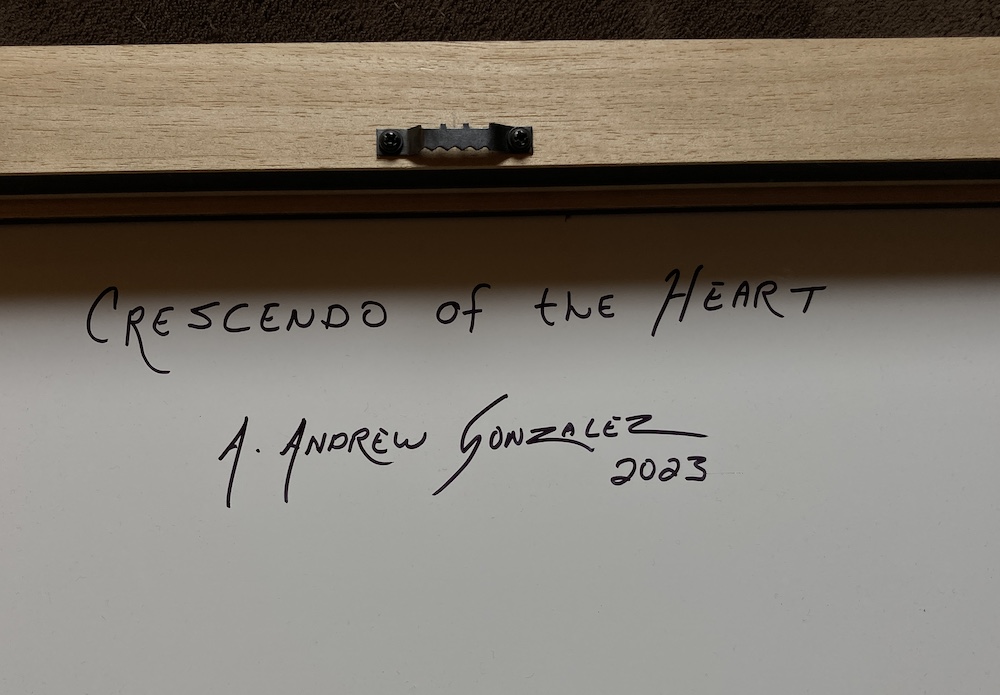 CRESCENDO of the HEART
A. ANDREW GONZALEZ
2023